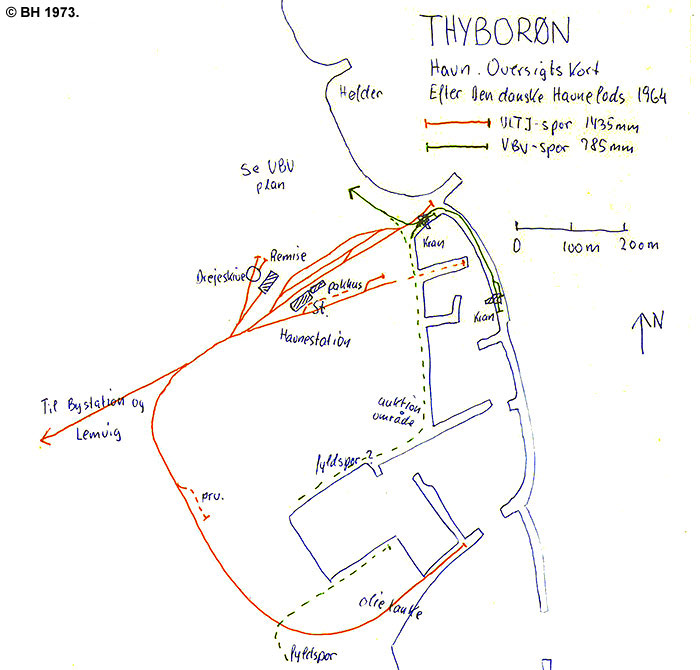 © BH 1973.
THYBORØN
Havn. Oversigts Kort
Efter Den danske Havnelods 1964
VLTJ-spor 1435mm
VBV-spor 785mm
Høfder
Se VBV
plan
0 100m 200m
N
Kran
Kran
Remise
Drejeskive
pakhus
St.
Havnestation
Til Bystation og
Lemvig
auktion
område
fyldspor ?
prv.
olietanke
fyldspor